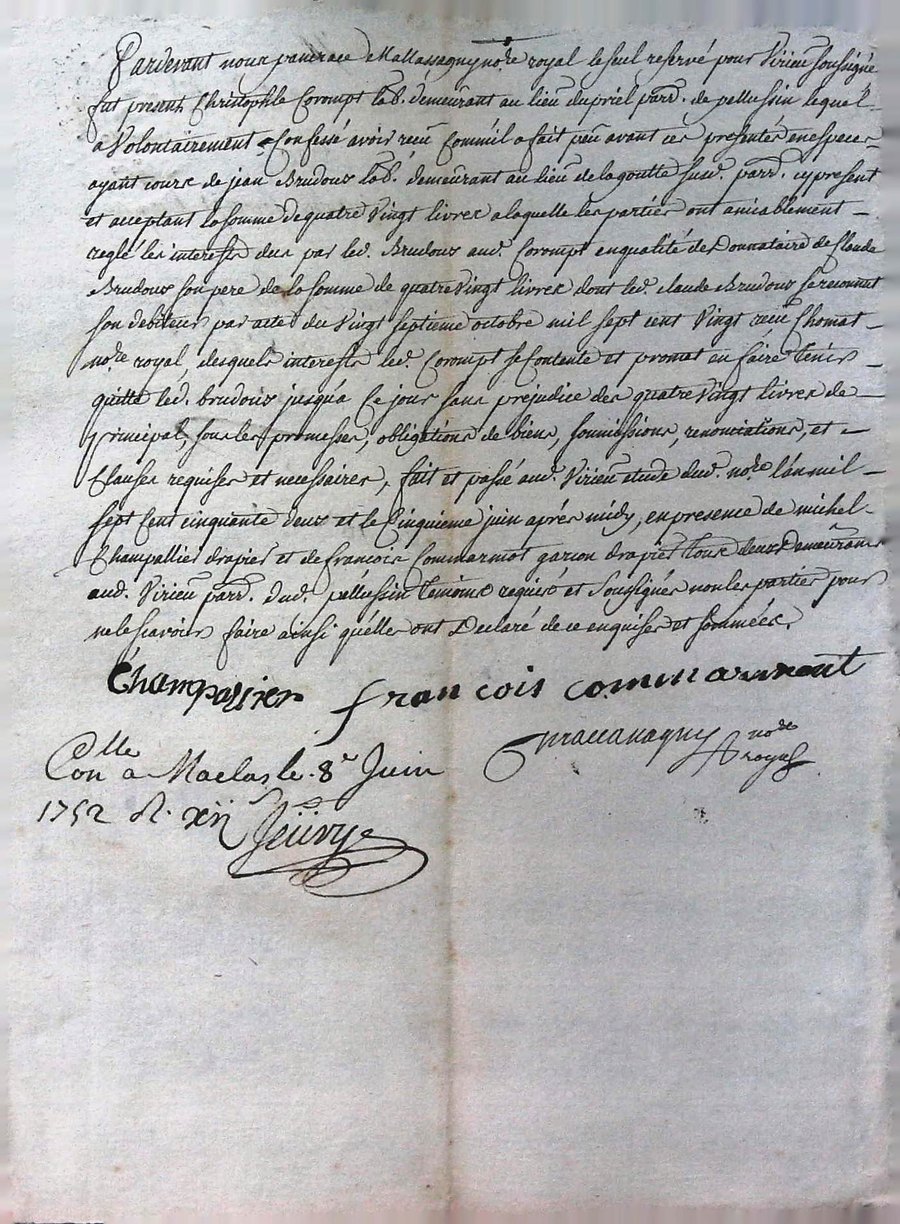 Pardevant nous pancrace Mallassagny no.re royal le seul reservé pour Virieu soussigné
fut present Christophle Corompt lab.r demeurant au lieu du priel parr.e de pellussin lequel
a Volontairement Confessé avoir recu Comm'il a fait peu avant ces presentes en especes
ayant cours de jean Brudous lab.r demeurant au lieu de la goutte susd. parr.e cy present
et acceptant la somme de quatre Vingt livres a laquelle les parties ont amiablement
reglé les interests dus par led. Brudous aud. Corompt en qualité de Donnataire de Claude
Brudous son pere de la somme de quatre Vingt livres dont led. claude Brudous se reconnut
son debiteur par acte du Vingt septieme octobre mil sept cent Vingt recu Thomat
no.re royal, desquels interests led. Corompt se Contente et promet en faire tenir
quitte led. brudous jusqu'a Ce jour sans prejudice des quatre Vingt livres de
principal, sous les promesses, obligations de biens, soumissions, renonciations, et
Clauses requises et necessaires, fait et passé aud. Virieu etude dud. no.re l'an mil
sept Cent cinquante deux et le Cinquieme juin aprés midy, en presence de michel
Champallier drapier et de francois Commarmot garcon drapier tous deux Demeurans
aud. Virieu parr.e dud. pellussin temoins requis et Soussignés non les parties pour
ne le scavoir faire ainsi qu'elles ont Declaré de ce enquises et sommées.
Champallier francois commarmont
Mallassagny no.re royal
Con.lle a Maclas le 8.e Juin
1752 R. xii s